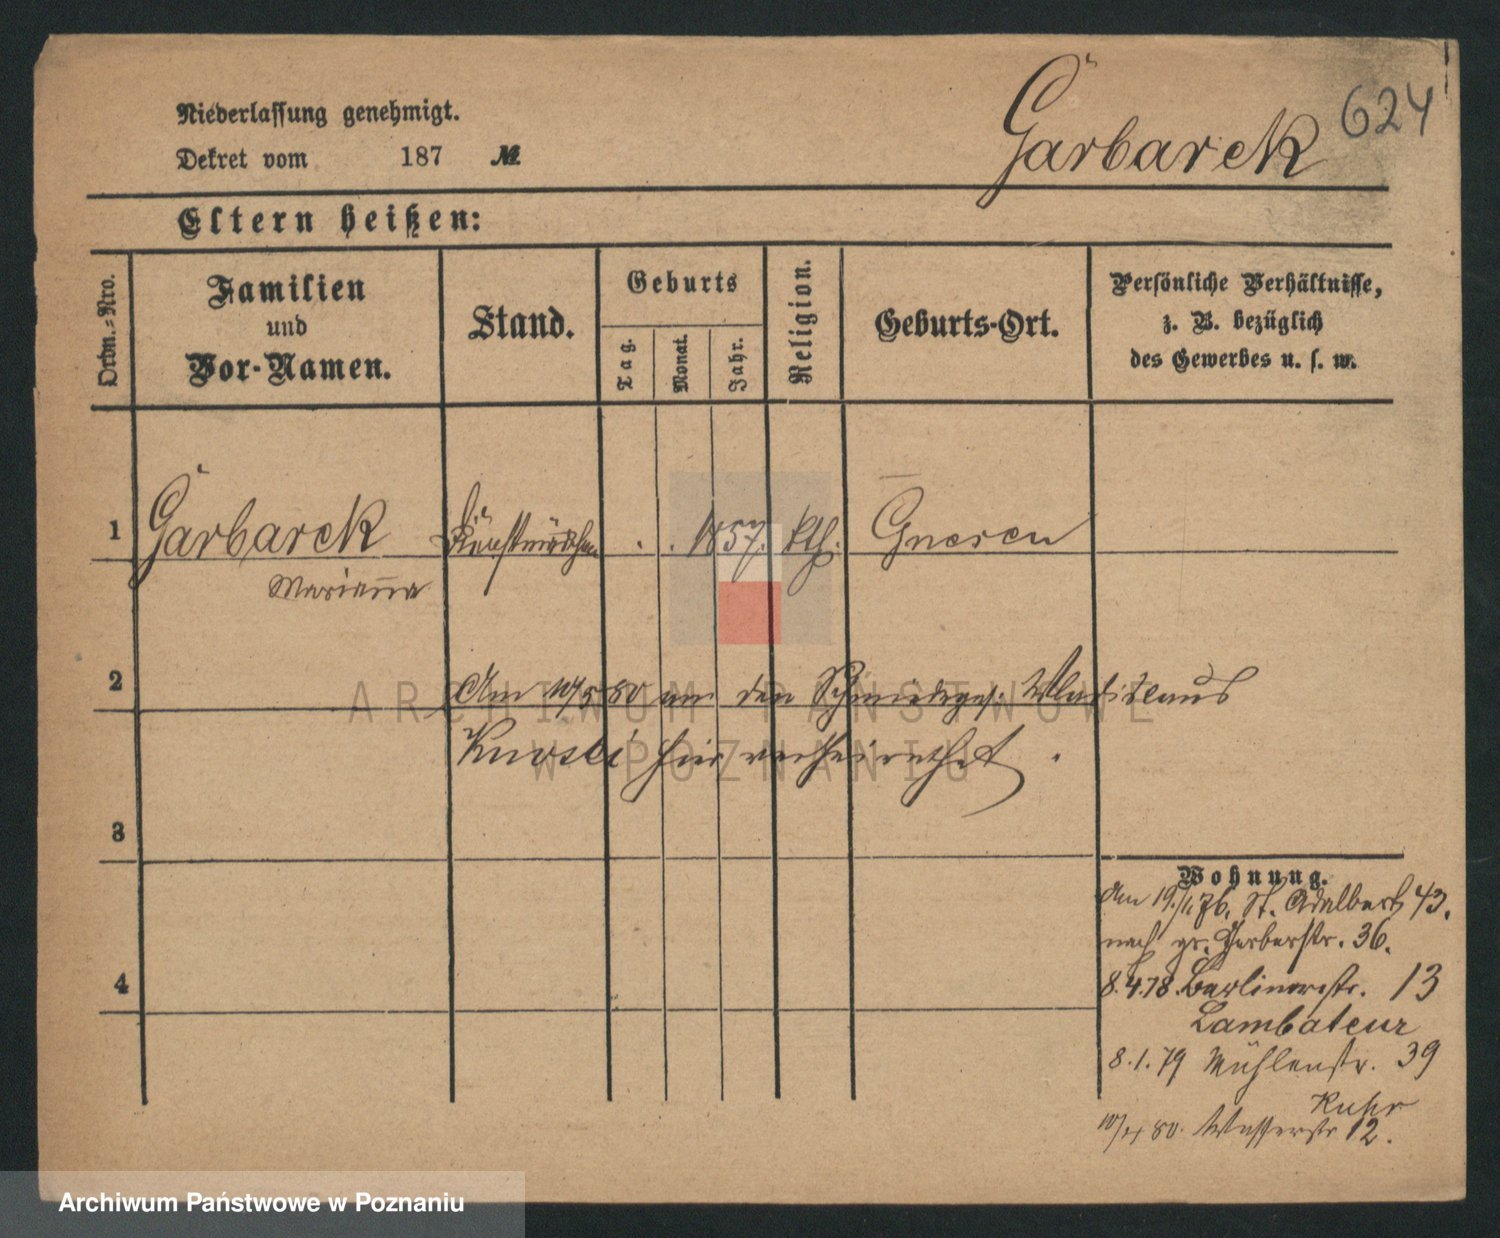 Niederlassung genehmigt.
Dekret vom 187 №
Garbarek
624
Eltern heißen:
Ordn.-Nro.
Familien
und
Vor-Namen.
Stand.
Geburts
Tag.
Monat.
Jahr.
Religion.
Geburts-Ort.
Persönliche Verhältnisse,
z. B. bezüglich
des Gewerbes u. s. w.
1 Garbarek 1857. kth. Gnesen
Marianna
2 Am 10/5 80 mit den Schmiedeges. Wladislaus
hier verheirathet.
3
Wohnung.
Am 19./11 76. St. Adalbert 43.
nach gr. Gerberstr. 36.
4
8.4.78. Berlinerstr. 13
Lambateur
8.1.79 Mühlenstr. 39
80. Wasserstr 12.
ARCHIWUM PAŃSTWOWE
W POZNANIU
Archiwum Państwowe w Poznaniu